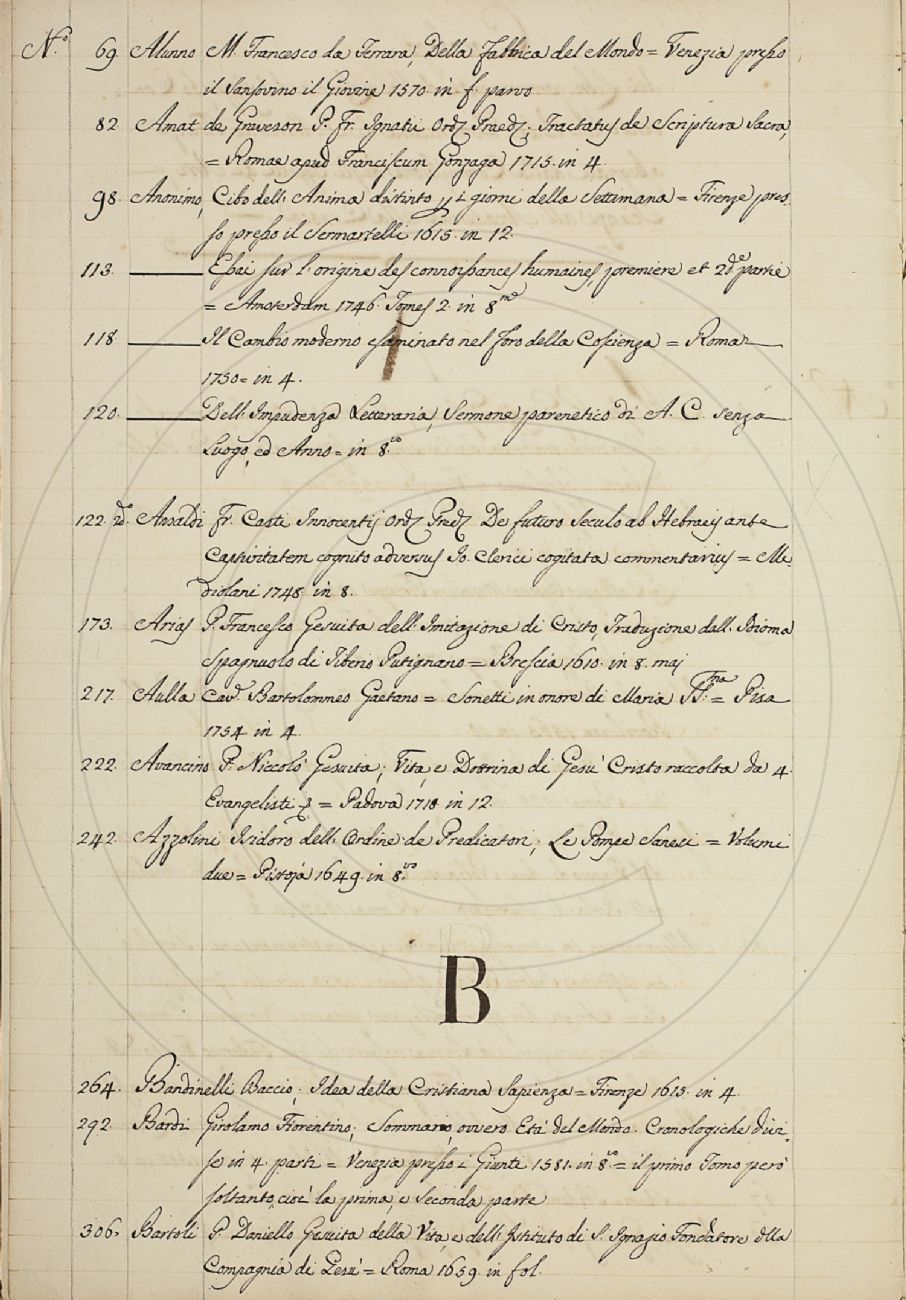 N.º 69. Alunno M. Francesco da Ferrara, Della fabbrica del Mondo = Venezia presso
il Sansovino il Giovine 1570. in f. parvo
82. Amat de Graveson P. Fr. Ignatii Ord. Praed.; Tractatus de Scriptura Sacra,
= Romae apud Franciscum Gonzaga 1715. in 4.
98. Anonimo, Cibo dell'Anima distinto i giorni della Settimana = Firenze pres-
so presso il Sermartelli 1615. in 12.
113. ——— Essai sur l'origine des connoissances humaines, premiere et 2.de partie
= Amsterdam 1746. Tomes 2. in 8.mo
118. ——— Il Cambio moderno esaminato nel foro della Coscienza = Roma
1750 = in 4.
120. ——— Dell'Impudenza Letteraria, Sermone parenetico di A. C. senza
Luogo, ed Anno = in 8.vo
122. Ansaldi Fr. Casti Innocentij Ord. Pred. De futuro Seculo ab Hebraeis ante
Captivitatem cognito adversus Jo. Clerici cogitata commentarius = Me-
diolani 1748. in 8.
173. Arias P. Francesco Gesuita dell'Imitazione di Cristo, Traduzione dall'Idioma
Spagnuolo di Tiberio Putignano = Brescia 1610. in 8. maj
217. Aulla Cav.e Bartolommeo Gaetano = Sonetti in onore di Maria SS.ma = Pisa
1754. in 4.
222. Avancino P. Niccolò Gesuita; Vita, e Dottrina di Gesù Cristo raccolta da 4.
Evangelisti = Padova 1718. in 12.
242. Azzolini Isidoro dell'Ordine de Predicatori; Le Pompe Sanesi = Volumi
due = Pistoja 1649. in 8.vo
B
264. Bandinelli Baccio; Idea della Cristiana Sapienza = Firenze 1615. in 4.
292. Bardi Girolamo Fiorentino; Sommario, ovvero Età del Mondo. Cronologiche divi-
se in 4. parti = Venezia presso i Giunti 1581. in 8.vo = il primo Tomo però
soltanto, cioè la prima, e Seconda parte
306. Bartoli P. Daniello Gesuita della Vita, e dell'Istituto di S. Ignazio Fondatore dlla
Compagnia di Gesù = Roma 1659. in fol.